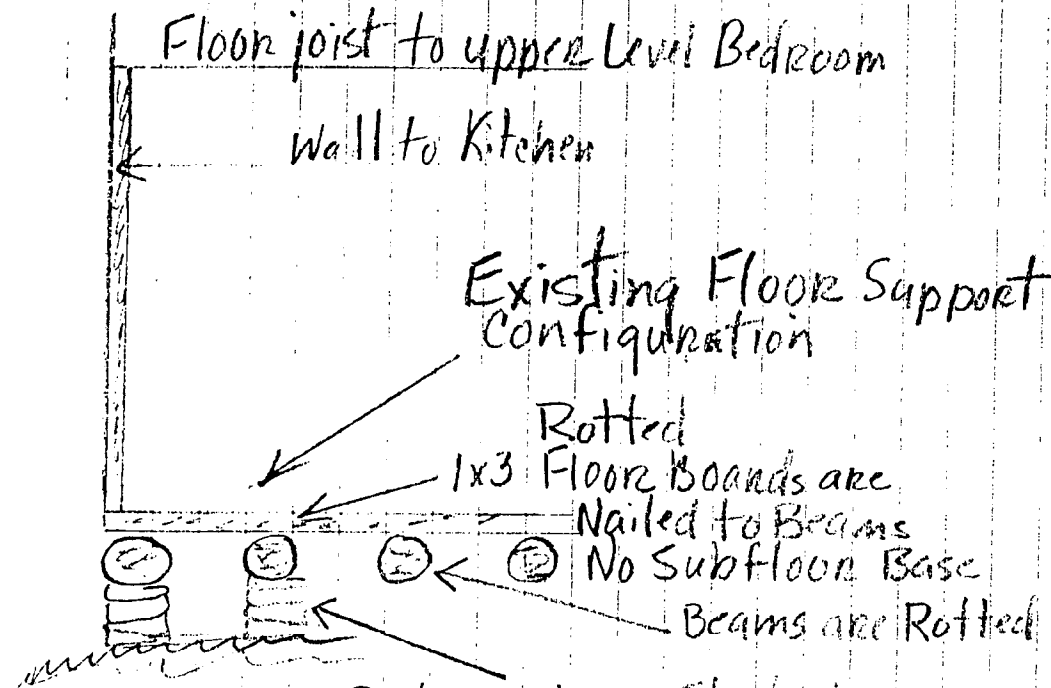 Floor joist to upper Level Bedroom
Wall to Kitchen
Existing Floor Support
Configuration
Rotted
1x3 Floor Boards are
Nailed to Beams
No Subfloor Base
Beams are Rotted